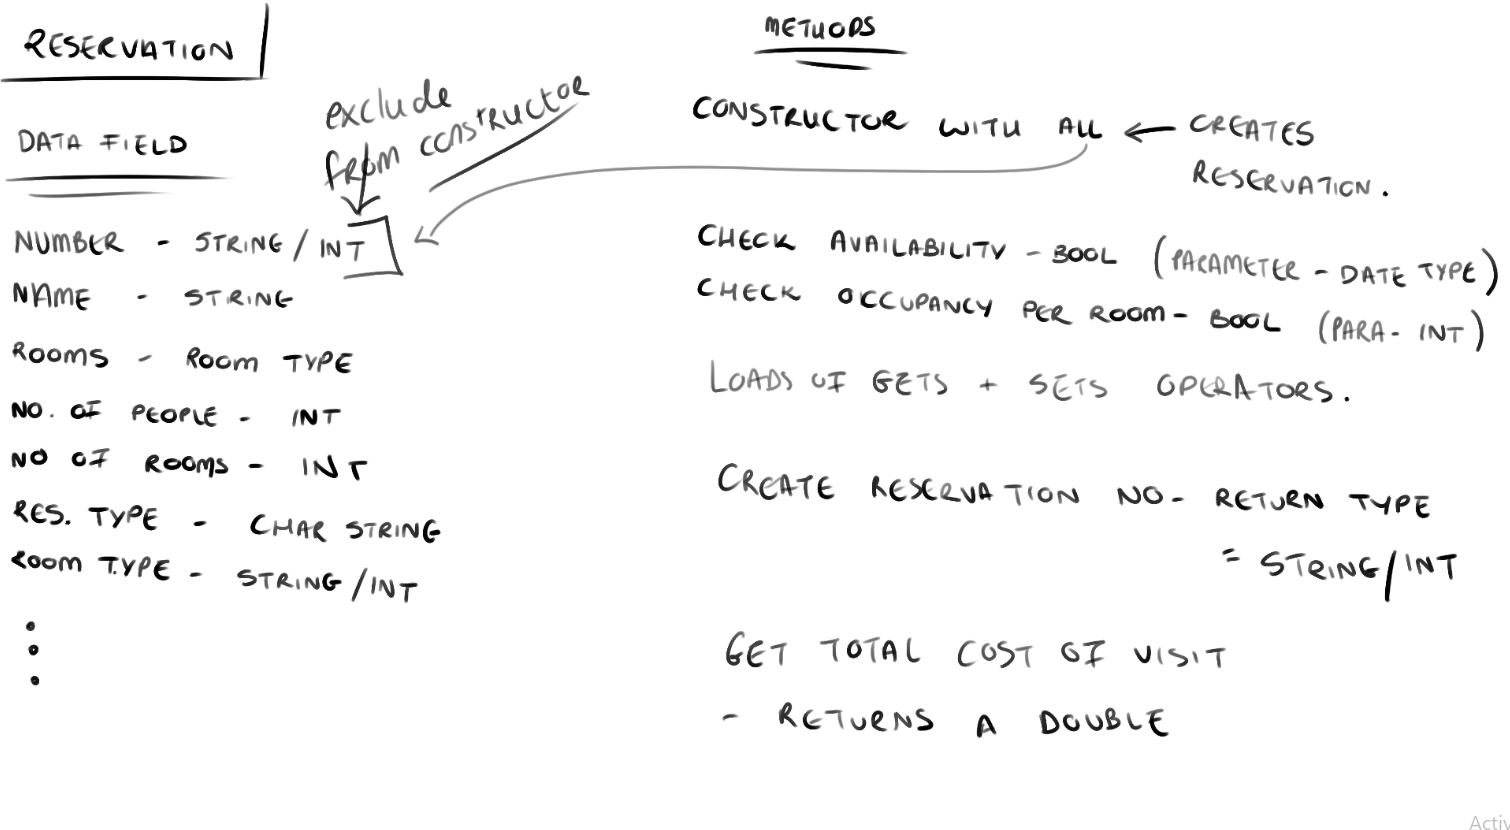 RESERVATION
DATA FIELD
exclude
from constructor
NUMBER - STRING / INT
NAME - STRING
ROOMS - ROOM TYPE
NO. OF PEOPLE - INT
NO OF ROOMS - INT
RES. TYPE - CHAR STRING
ROOM TYPE - STRING/INT
METHODS
CONSTRUCTOR WITH ALL ← CREATES
RESERVATION.
CHECK AVAILABILITY - BOOL (PARAMETER - DATE TYPE)
CHECK OCCUPANCY PER ROOM - BOOL (PARA - INT)
LOADS OF GETS + SETS OPERATORS.
CREATE RESERVATION NO - RETURN TYPE
= STRING/INT
GET TOTAL COST OF VISIT
- RETURNS A DOUBLE
Activ